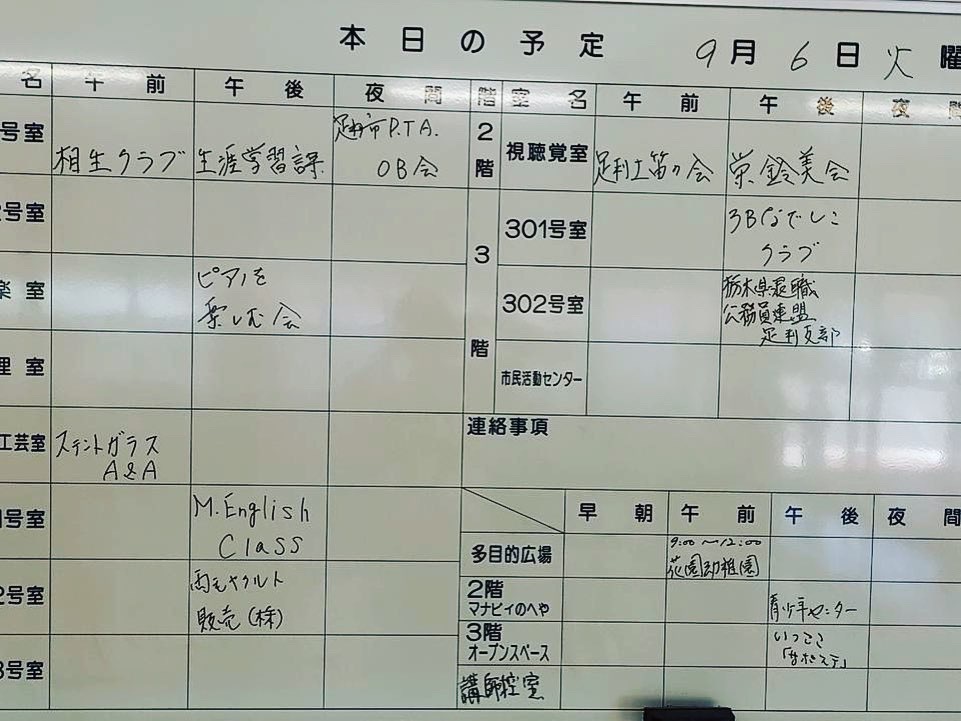 本日の予定 9月6日火曜
名 午前 午後 夜間
号室 相生クラブ 生涯学習課 足利市P.T.A.
OB会
号室
楽室 ピアノを
楽しむ会
理室
工芸室 ステントガラス
A&A
号室 M.English
Class
2号室 両毛ヤクルト
販売(株)
3号室
階 室名 午前 午後 夜間
2階 視聴覚室 足利土笛の会 栄鈴美会
3階
301号室 3Bなでしこ
クラブ
302号室 栃木県退職
公務員連盟
足利支部
市民活動センター
連絡事項
早朝 午前 午後 夜間
多目的広場 9:00〜12:00
花園幼稚園
2階
マナビィのへや 青少年センター
3階
オープンスペース いっここ
「サポステ」
講師控室